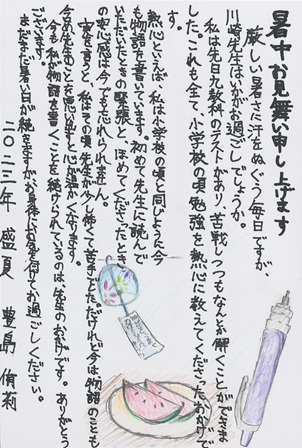 暑中お見舞い申し上げます
厳しい暑さに汗をぬぐう毎日ですが、
川崎先生はいかがお過ごしでしょうか。
私は先日九教科のテストがあり、苦戦しつつもなんとか解くことができま
した。これも全て、小学校の頃勉強を熱心に教えてくださったおかげで
す。
熱心といえば、私は小学校の頃と同じように今
も物語を書いています。初めて先生に読んで
いただいたときの緊張と、ほめてくださったとき
の安心感は今でも忘れられません。
実を言うと、私はその頃先生が少し怖くて苦手でしただけれど今は物語のことも
今の先生のことを思い出すと心が温かくなります。
今も私が物語を書くことを続けられているのは、先生のおかげです。ありがとう
ございます。
まだまだ暑い日が続きますがお身体にお気を付けてお過ごしください。
二〇二三年 盛夏 豊島 侑莉